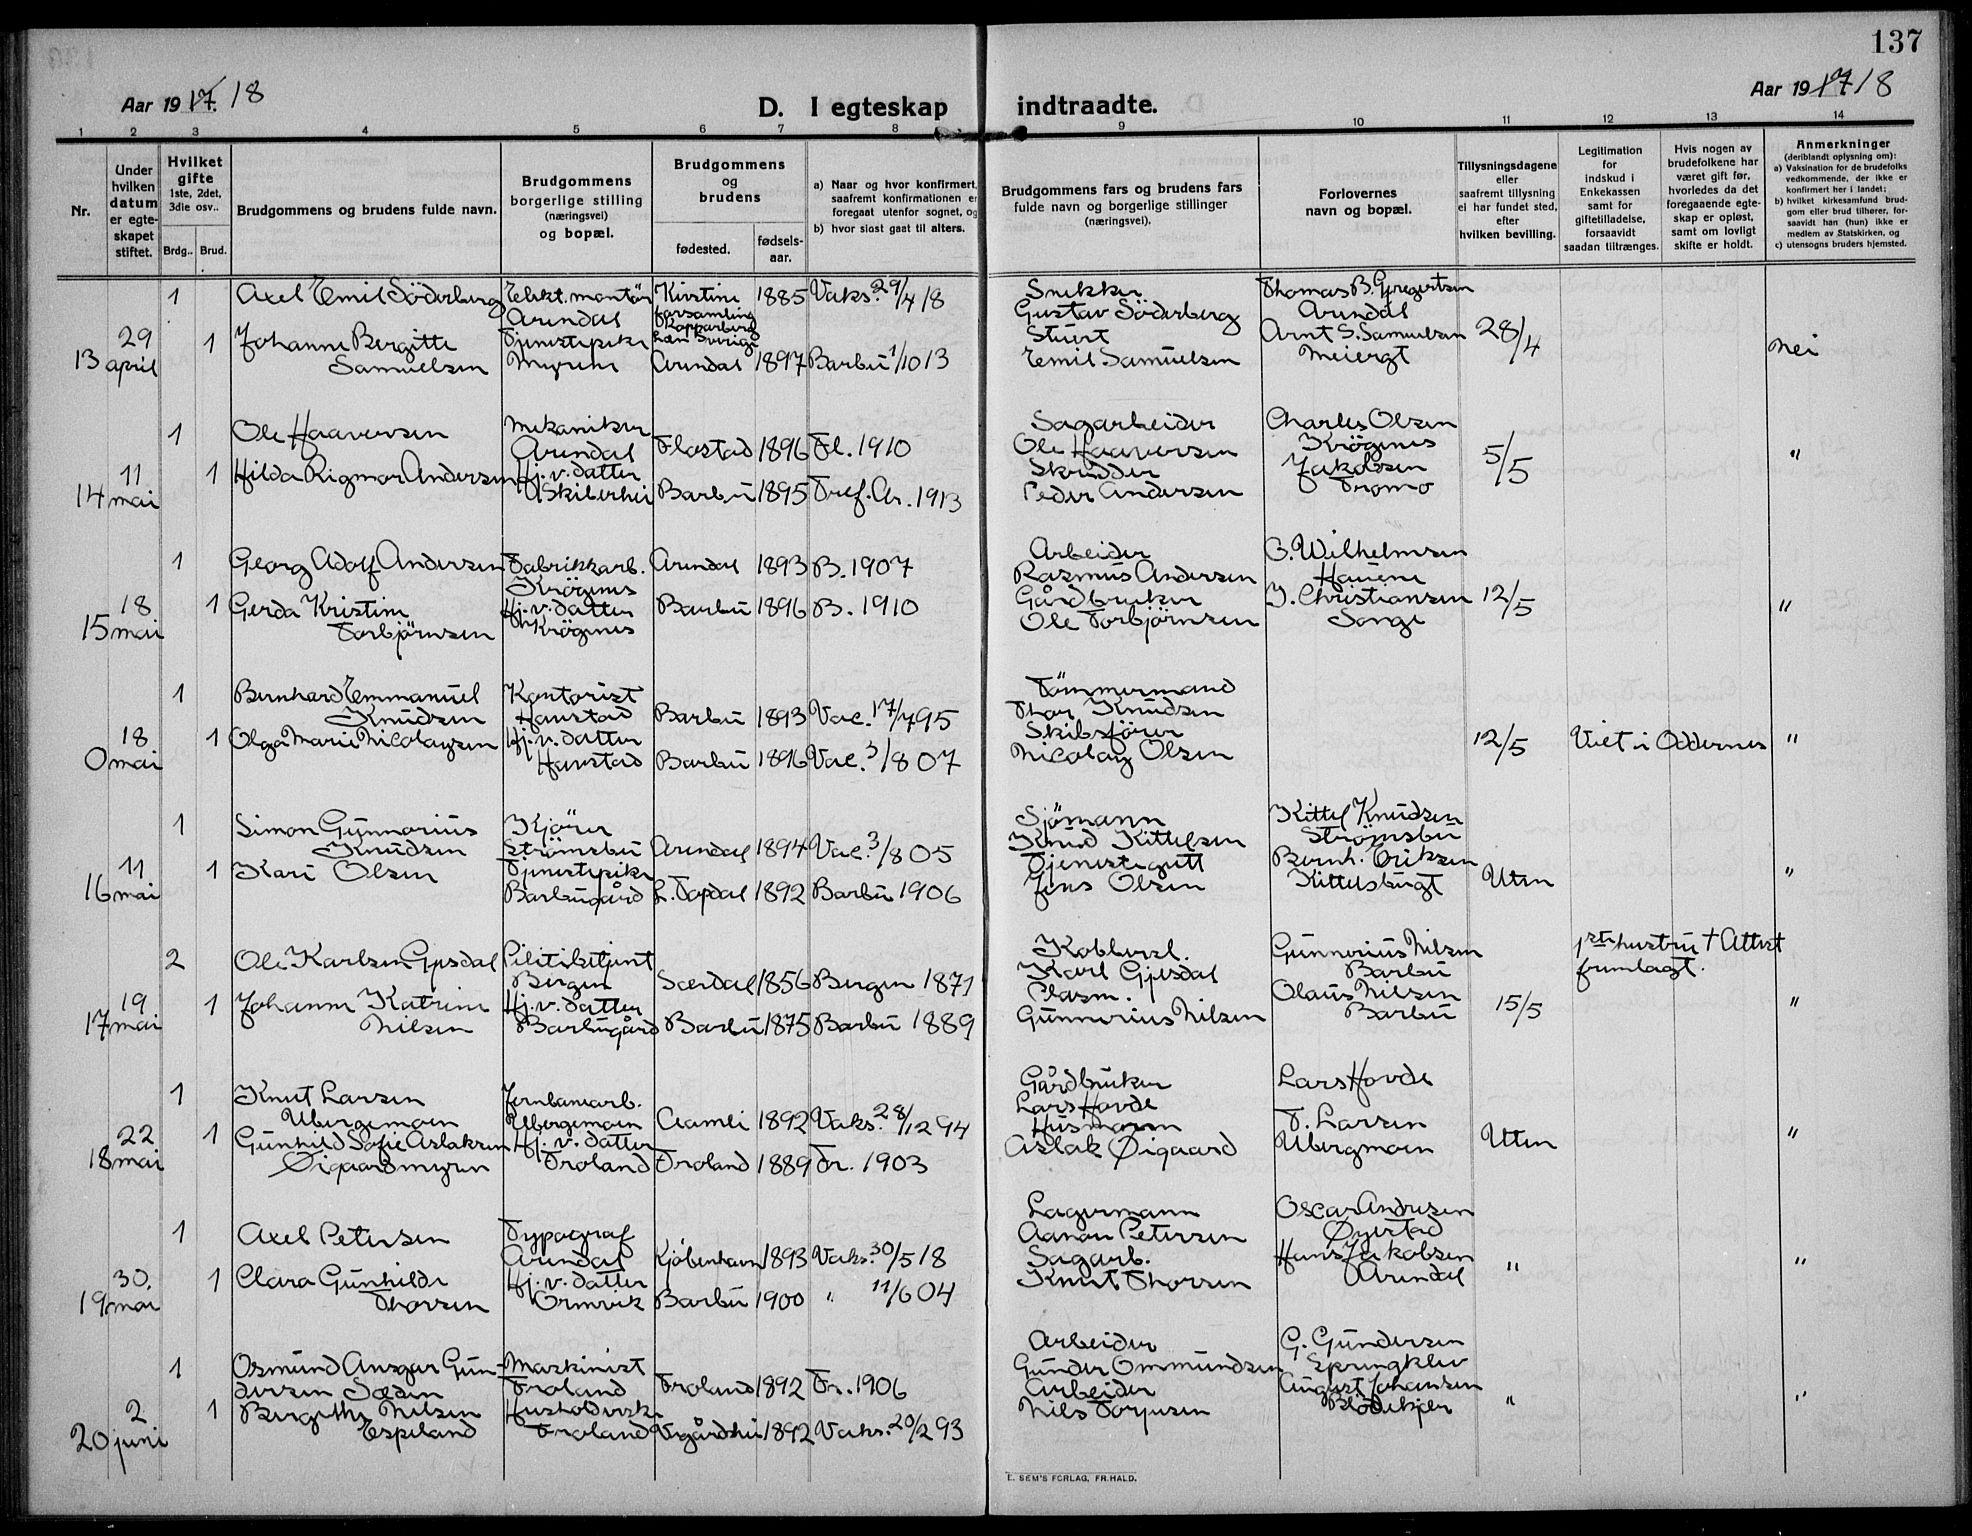 137
Aar 1917. 18
D. I egteskap indtraadte.
Aar 1917 18
1 2 3 4 5 6 7 8 9 10 11 12 13 14
Nr.
Under hvilken datum er egte- skapet stiftet.
Hvilket gifte 1ste, 2det, 3die osv..
Brdg.. Brud.
Brudgommens og brudens fulde navn.
Brudgommens borgerlige stilling (næringsvei) og bopæl.
Brudgommens og brudens
fødested. fødsels- aar.
a) Naar og hvor konfirmert, saafremt konfirmationen er foregaat utenfor sognet, og
b) hvor sidst gaat til alters.
Brudgommens fars og brudens fars fulde navn og borgerlige stillinger (næringsvei).
Forlovernes navn og bopæl.
Tillysningsdagene eller saafremt tillysning ei har fundet sted, efter hvilken bevilling.
Legitimation for indskud i Enkekassen samt for giftetilladelse, forsaavidt saadan tiltrænges.
Hvis nogen av brudefolkene har været gift før, hvorledes da det foregaaende egte- skap er opløst, samt om lovligt skifte er holdt.
Anmerkninger (deriblandt oplysning om):
a) Vaksination for de brudefolks vedkommende, der ikke er konfirmert her i landet;
b) hvilket kirkesamfund brud- gom eller brud tilhører, for- saavidt han (hun) ikke er medlem av Statskirken, og
c) utensogns bruders hjemsted.
1 Axel Emil Söderberg Elekt. montör Kristine 1885 Vaks. 29/4 18 Snekker Thomas B. Gregertsen
Arundal forsamling Gustav Söderberg Arundal
Kopparberg
29 1 Johanne Bergitte Tjenestepike Län Sverige Stuert Arnt S. Samuelsen 28/4
13 april Samuelsen Myrene Arendal 1897 Barbu 1/10 13 Emil Samuelsen Meiergt Nei
1 Ole Haaversen Mekaniker Flostad 1896 Fl. 1910 Sagarbeider Charles Olsen
Arendal Ole Haaversen Krögenes
11 1 Hilda Rigmor Andersen Hj. v. datter Skredder Jakobsen 5/5 "
14 mai Skiberhei Barbu 1895 Tref. Ar. 1913 Peder Andersen Tromø
1 Georg Adolf Andersen Fabrikkarb. Arendal 1893 B. 1907 Arbeider B. Wilhelmsen
Krögenes Rasmus Andersen Havene
18 1 Gerda Kristine Hj. v. datter Barbu 1896 B. 1910 Gårdbruker J. Christiansen 12/5 "
15 mai Torbjörnsen Krögenes Ole Torbjörnsen Songe
1 Bernhard Emmanuel Kontorist Tömmermand
Knudsen Harstad Barbu 1893 Vac. 17/7 95 Thor Knudsen
18 1 Olga Marie Nicolaysen Hj. v. datter Skibsförer 12/5 Viet i Oddernes "
0 mai Harstad Barbu 1896 Vac. 3/8 07 Nicolay Olsen
1 Simon Gunnarius Kjörer Sjömann Kittel Knudsen
Knudsen Strömsbu Arendal 1894 Vac. 3/8 05 Knud Kittelsen Strömsbu
11 1 Kari Olsen Tjenestepike Tjenestegutt Bernh. Eriksen
16 mai Barbugård L. Topdal 1892 Barbu 1906 Jens Olsen Kittelsbugt Uten "
2 Ole Karlsen Gjesdal Bergen Soerdal 1856 Bergen 1871 Kobbersl. Gunnerius Nilsen 1ste hustru † Attest
Karl Gjesdal Barbu fremlagt.
19 1 Johanne Katrine Hj. v. datter Olaus Nilsen 15/5 "
17 mai Nilsen Barbugård Barbu 1875 Barbu 1889 Gunnerius Nilsen Barbu
1 Knut Larsen Jernbanearb. Gårdbruker Lars Hovde
Ubergsmoen Ubergsmoen Aamli 1892 Vaks. 28/12 94 Lars Hovde T. Larsen
22 1 Gunhild Sofie Aslaksen Hj. v. datter Husmann Ubergmoen Uten "
18 mai Øigaardsmyren Froland Froland 1889 Fr. 1903 Aslak Øigaard
1 Axel Petersen Typograf Lagermann Oscar Andersen
Arendal Kjöbenhavn 1893 Vaks. 30/5 18 Aanon Petersen Øyestad
30. 1 Clara Gunhilde Hj. v. datter Sagarb. Hans Jakobsen " "
19 mai Thorsen Ormvik Barbu 1900 " 11/6 04 Knut Thorsen Arendal
1 Osmund Ansgar Gun- Maskinist Arbeider G. Gundersen
dersen Froland Froland 1892 Fr. 1906 Gunder Ommundsen Springklev
2 1 Bergithe Nilsen Husholderske Arbeider August Johansen " "
20 juni Espeland Froland Vegårdshei 1892 Vaks. 20/2 93 Nils Torjusen Blödekjær
E. SEM'S FORLAG, FR.HALD.